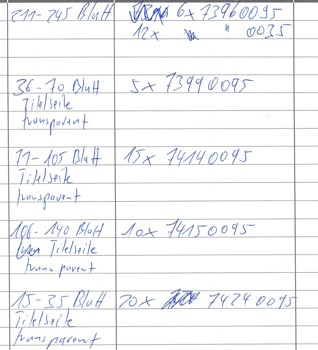 211-245 Blatt 6x 73960095
12x " " 0035
36-70 Blatt 5x 73990095
Titelseite
transparent
71-105 Blatt 15x 74140095
Titelseite
transparent
106-140 Blatt 10x 74150095
Titelseite
transparent
15-35 Blatt 20x 74240095
Titelseite
transparent